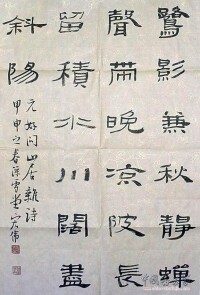 鷺影兼秋靜蟬
聲帶晚涼陂長
留積水川闊盡
斜陽
元好问山居雜诗
甲申之春